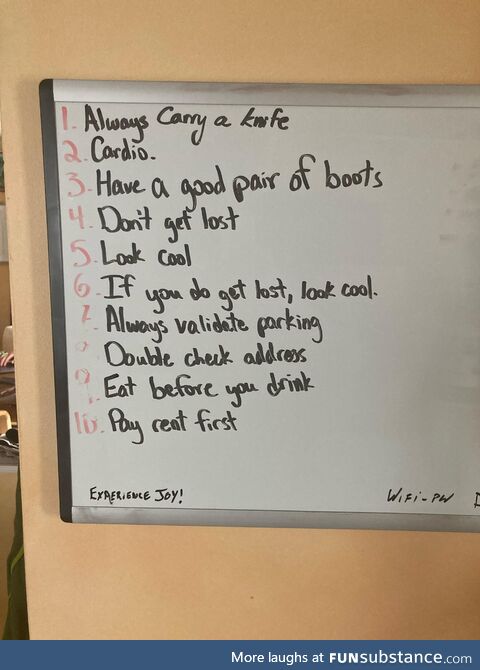 1. Always Carry a knife
2. Cardio.
3. Have a good pair of boots
4. Don't get lost
5. Look cool
6. If you do get lost, look cool.
7. Always validate parking
Double check address
9. Eat before you drink
10. Pay rent first
EXPERIENCE JOY!
WiFi-PW
More laughs at FUNsubstance.com